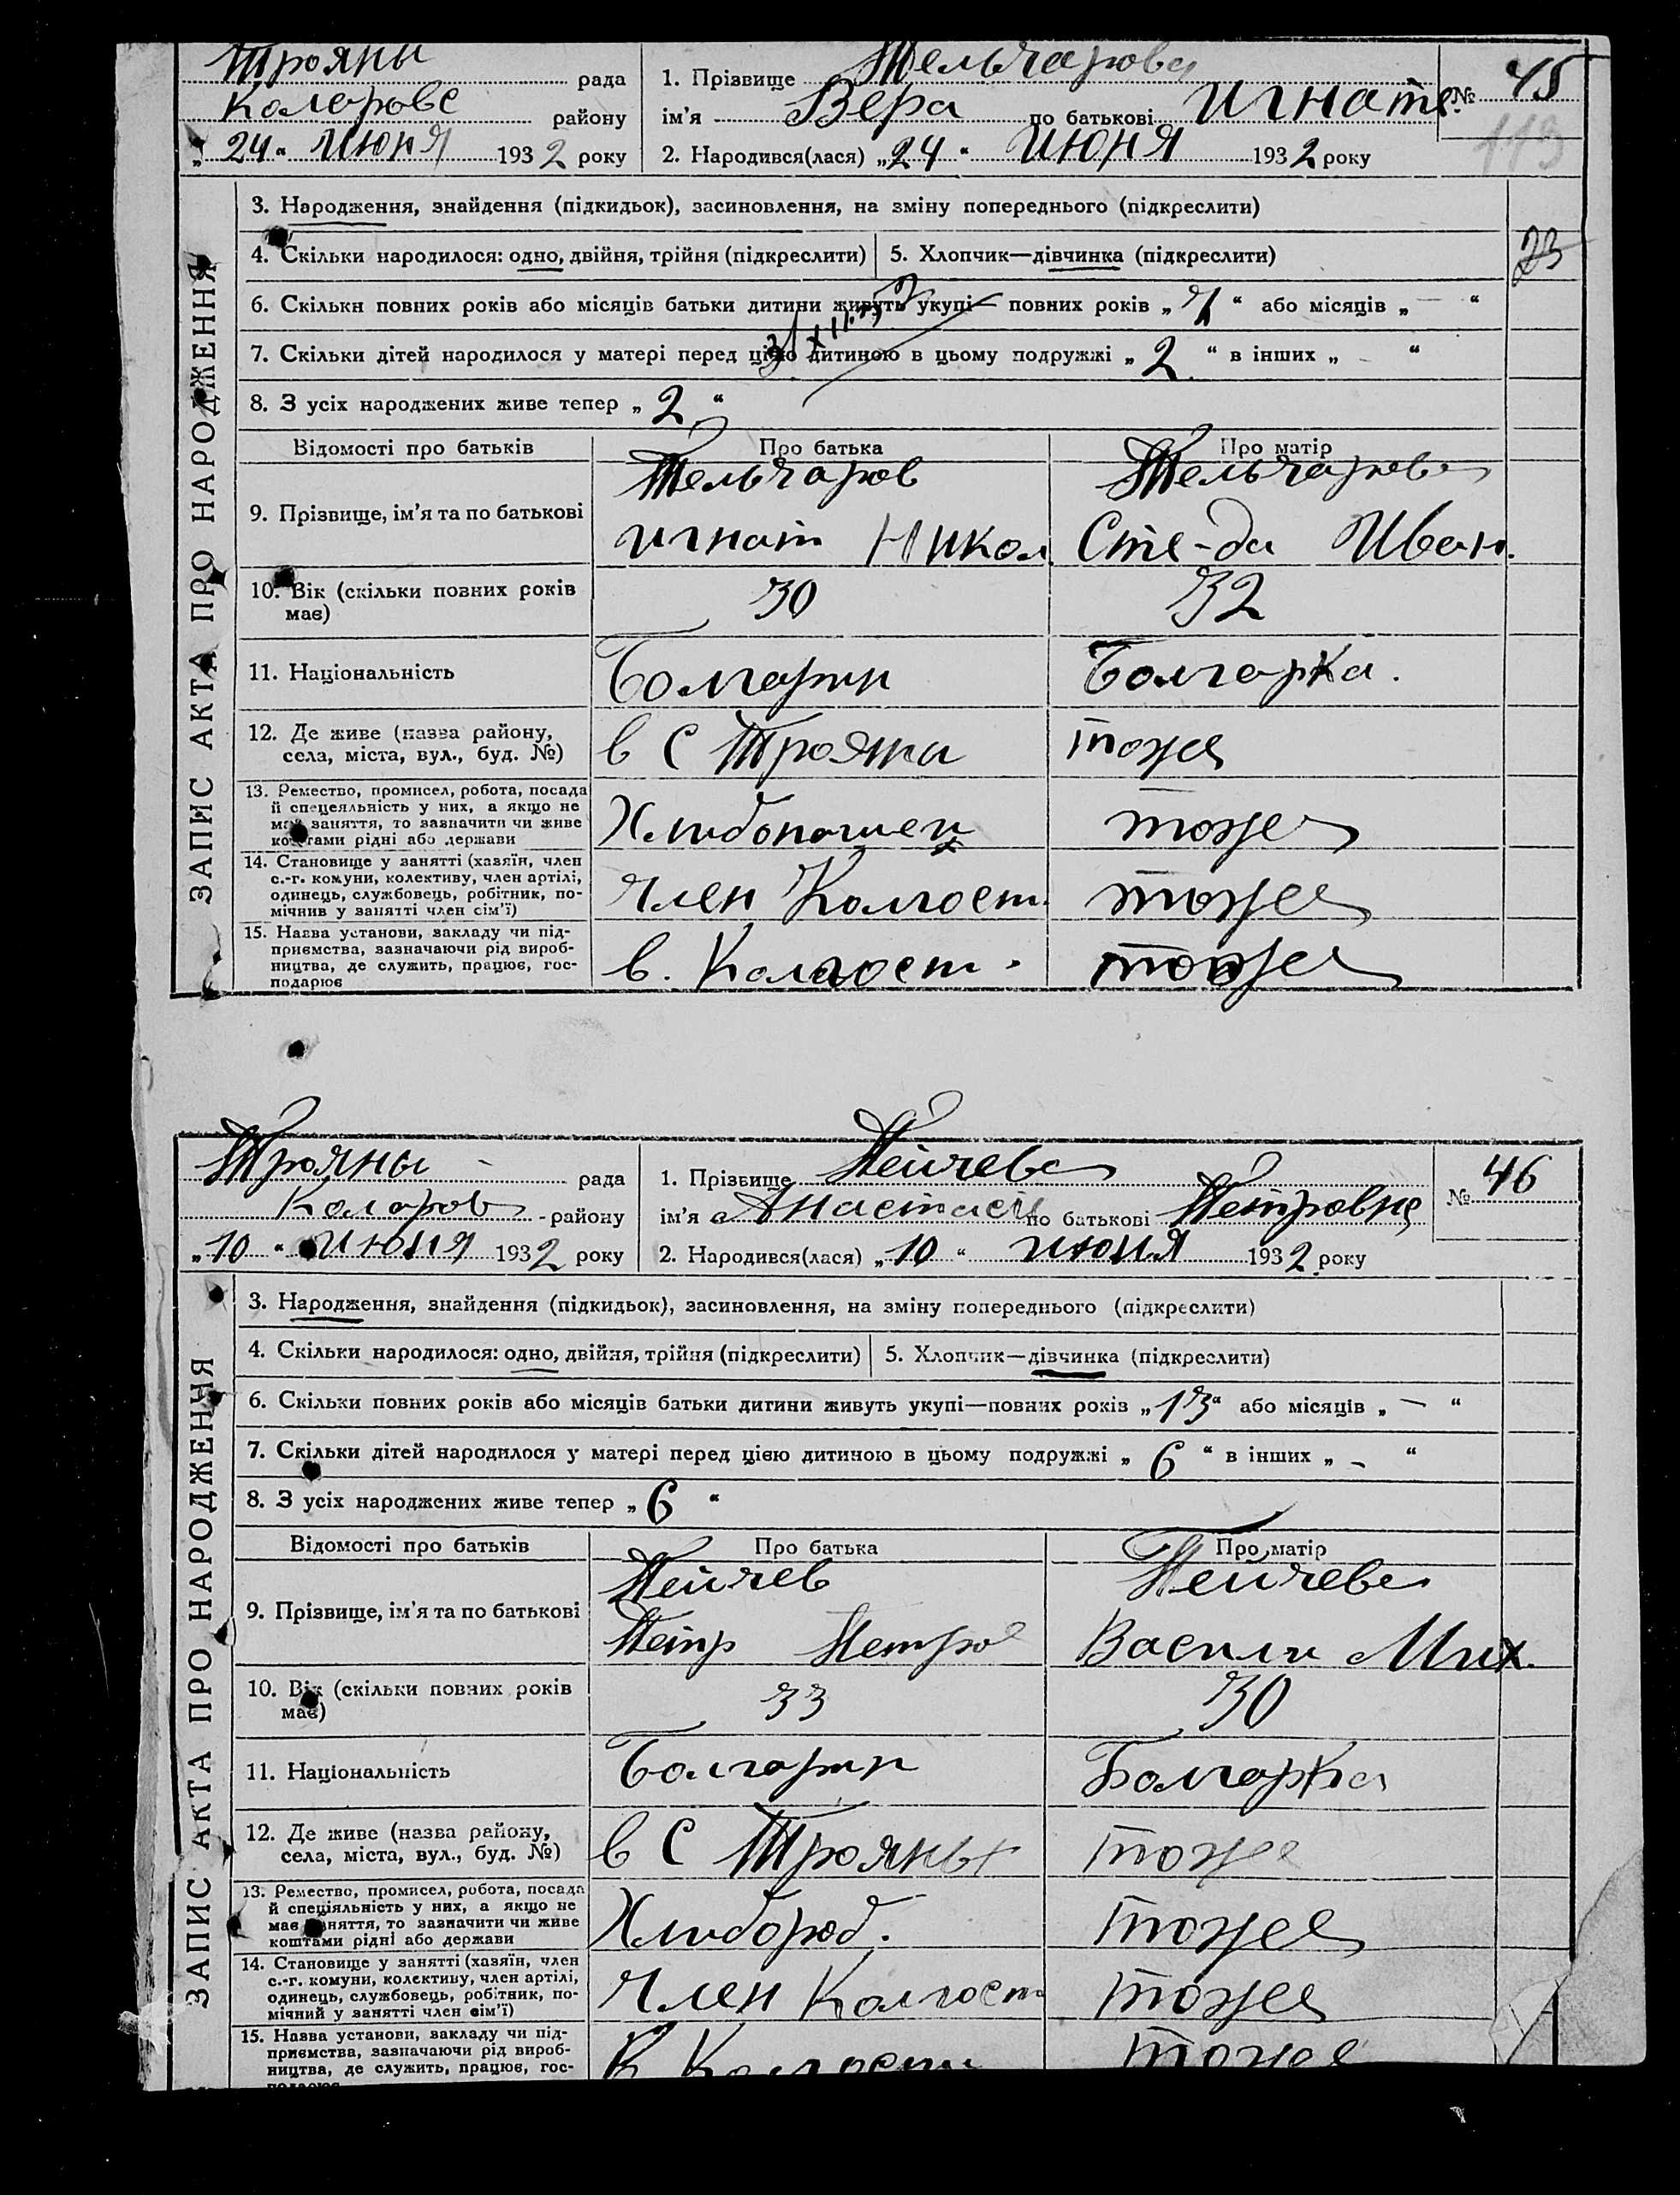 Трояны рада
Коларовс району
„24“ июня 1932 року
1. Прізвище Тельчарова
ім'я Вера по батькові Игнат.
2. Народився(лася) „24“ июня 1932 року
№ 45
113
ЗАПИС АКТА ПРО НАРОДЖЕННЯ
3. Народження, знайдення (підкидьок), засиновлення, на зміну попереднього (підкреслити)
4. Скільки народилося: одно, двійня, трійня (підкреслити) 5. Хлопчик—дівчинка (підкреслити)
23
6. Скільки повних років або місяців батьки дитини живуть укупі— повних років „ “ або місяців „—“
7. Скільки дітей народилося у матері перед цією дитиною в цьому подружжі „2“ в інших „-“
8. З усіх народжених живе тепер „2“
Відомості про батьків Про батька Про матір
9. Прізвище, ім'я та по батькові
Тельчаров
Игнат Никол.
Тельчарова
Сте-да Иван.
10. Вік (скільки повних років
має)
30 32
11. Національність Болгарин Болгарка.
12. Де живе (назва району,
села, міста, вул., буд. №)
в С Трояны тоже
13. Ремество, промисел, робота, посада
й спеціяльність у них, а якщо не
має заняття, то зазначити чи живе
коштами рідні або держави
Хлибопашец тоже
14. Становище у занятті (хазяїн, член
с.-г. комуни, колективу, член артілі,
одинець, службовець, робітник, по-
мічник у занятті член сім'ї)
член Колгосп. тоже
15. Назва установи, закладу чи під-
приємства, зазначаючи рід вироб-
ництва, де служить, працює, гос-
подарює
в. Колгосп. тоже
Трояны рада
Коларов району
„10“ июня 1932 року
1. Прізвище Пейчева
ім'я Анастаси по батькові Петровна
2. Народився(лася) „10“ июня 1932 року
№ 46
ЗАПИС АКТА ПРО НАРОДЖЕННЯ
3. Народження, знайдення (підкидьок), засиновлення, на зміну попереднього (підкреслити)
4. Скільки народилося: одно, двійня, трійня (підкреслити) 5. Хлопчик—дівчинка (підкреслити)
6. Скільки повних років або місяців батьки дитини живуть укупі—повних років „13“ або місяців „—“
7. Скільки дітей народилося у матері перед цією дитиною в цьому подружжі „6“ в інших „-“
8. З усіх народжених живе тепер „6“
Відомості про батьків Про батька Про матір
9. Прізвище, ім'я та по батькові
Пейчев
Петр Петров
Пейчева
Васили Мих.
10. Вік (скільки повних років
має)
33 30
11. Національність Болгарин Болгарка
12. Де живе (назва району,
села, міста, вул., буд. №)
в С Трояны тоже
13. Ремество, промисел, робота, посада
й спеціяльність у них, а якщо не
має заняття, то зазначити чи живе
коштами рідні або держави
Хлибороб. тоже
14. Становище у занятті (хазяїн, член
с.-г. комуни, колективу, член артілі,
одинець, службовець, робітник, по-
мічний у занятті член сім'ї)
член Колгосп тоже
15. Назва установи, закладу чи під-
приємства, зазначаючи рід вироб-
ництва, де служить, працює, гос-
подарює
В Колгосп тоже